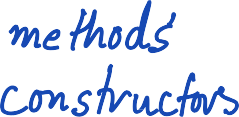 methods
constructors